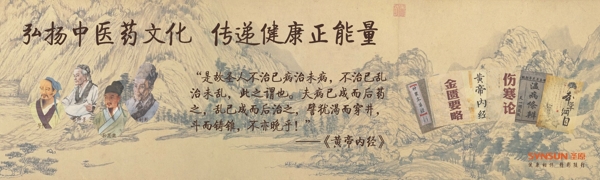 弘扬中医药文化 传递健康正能量
“是故圣人不治已病治未病，不治已乱
治未乱，此之谓也。夫病已成而后药
之，乱已成而后治之，譬犹渴而穿井，
斗而铸锥，不亦晚乎！”
——《黄帝内经》
金匮要略
黄帝内经
伤寒论
温病条辨
本草纲目
圣原